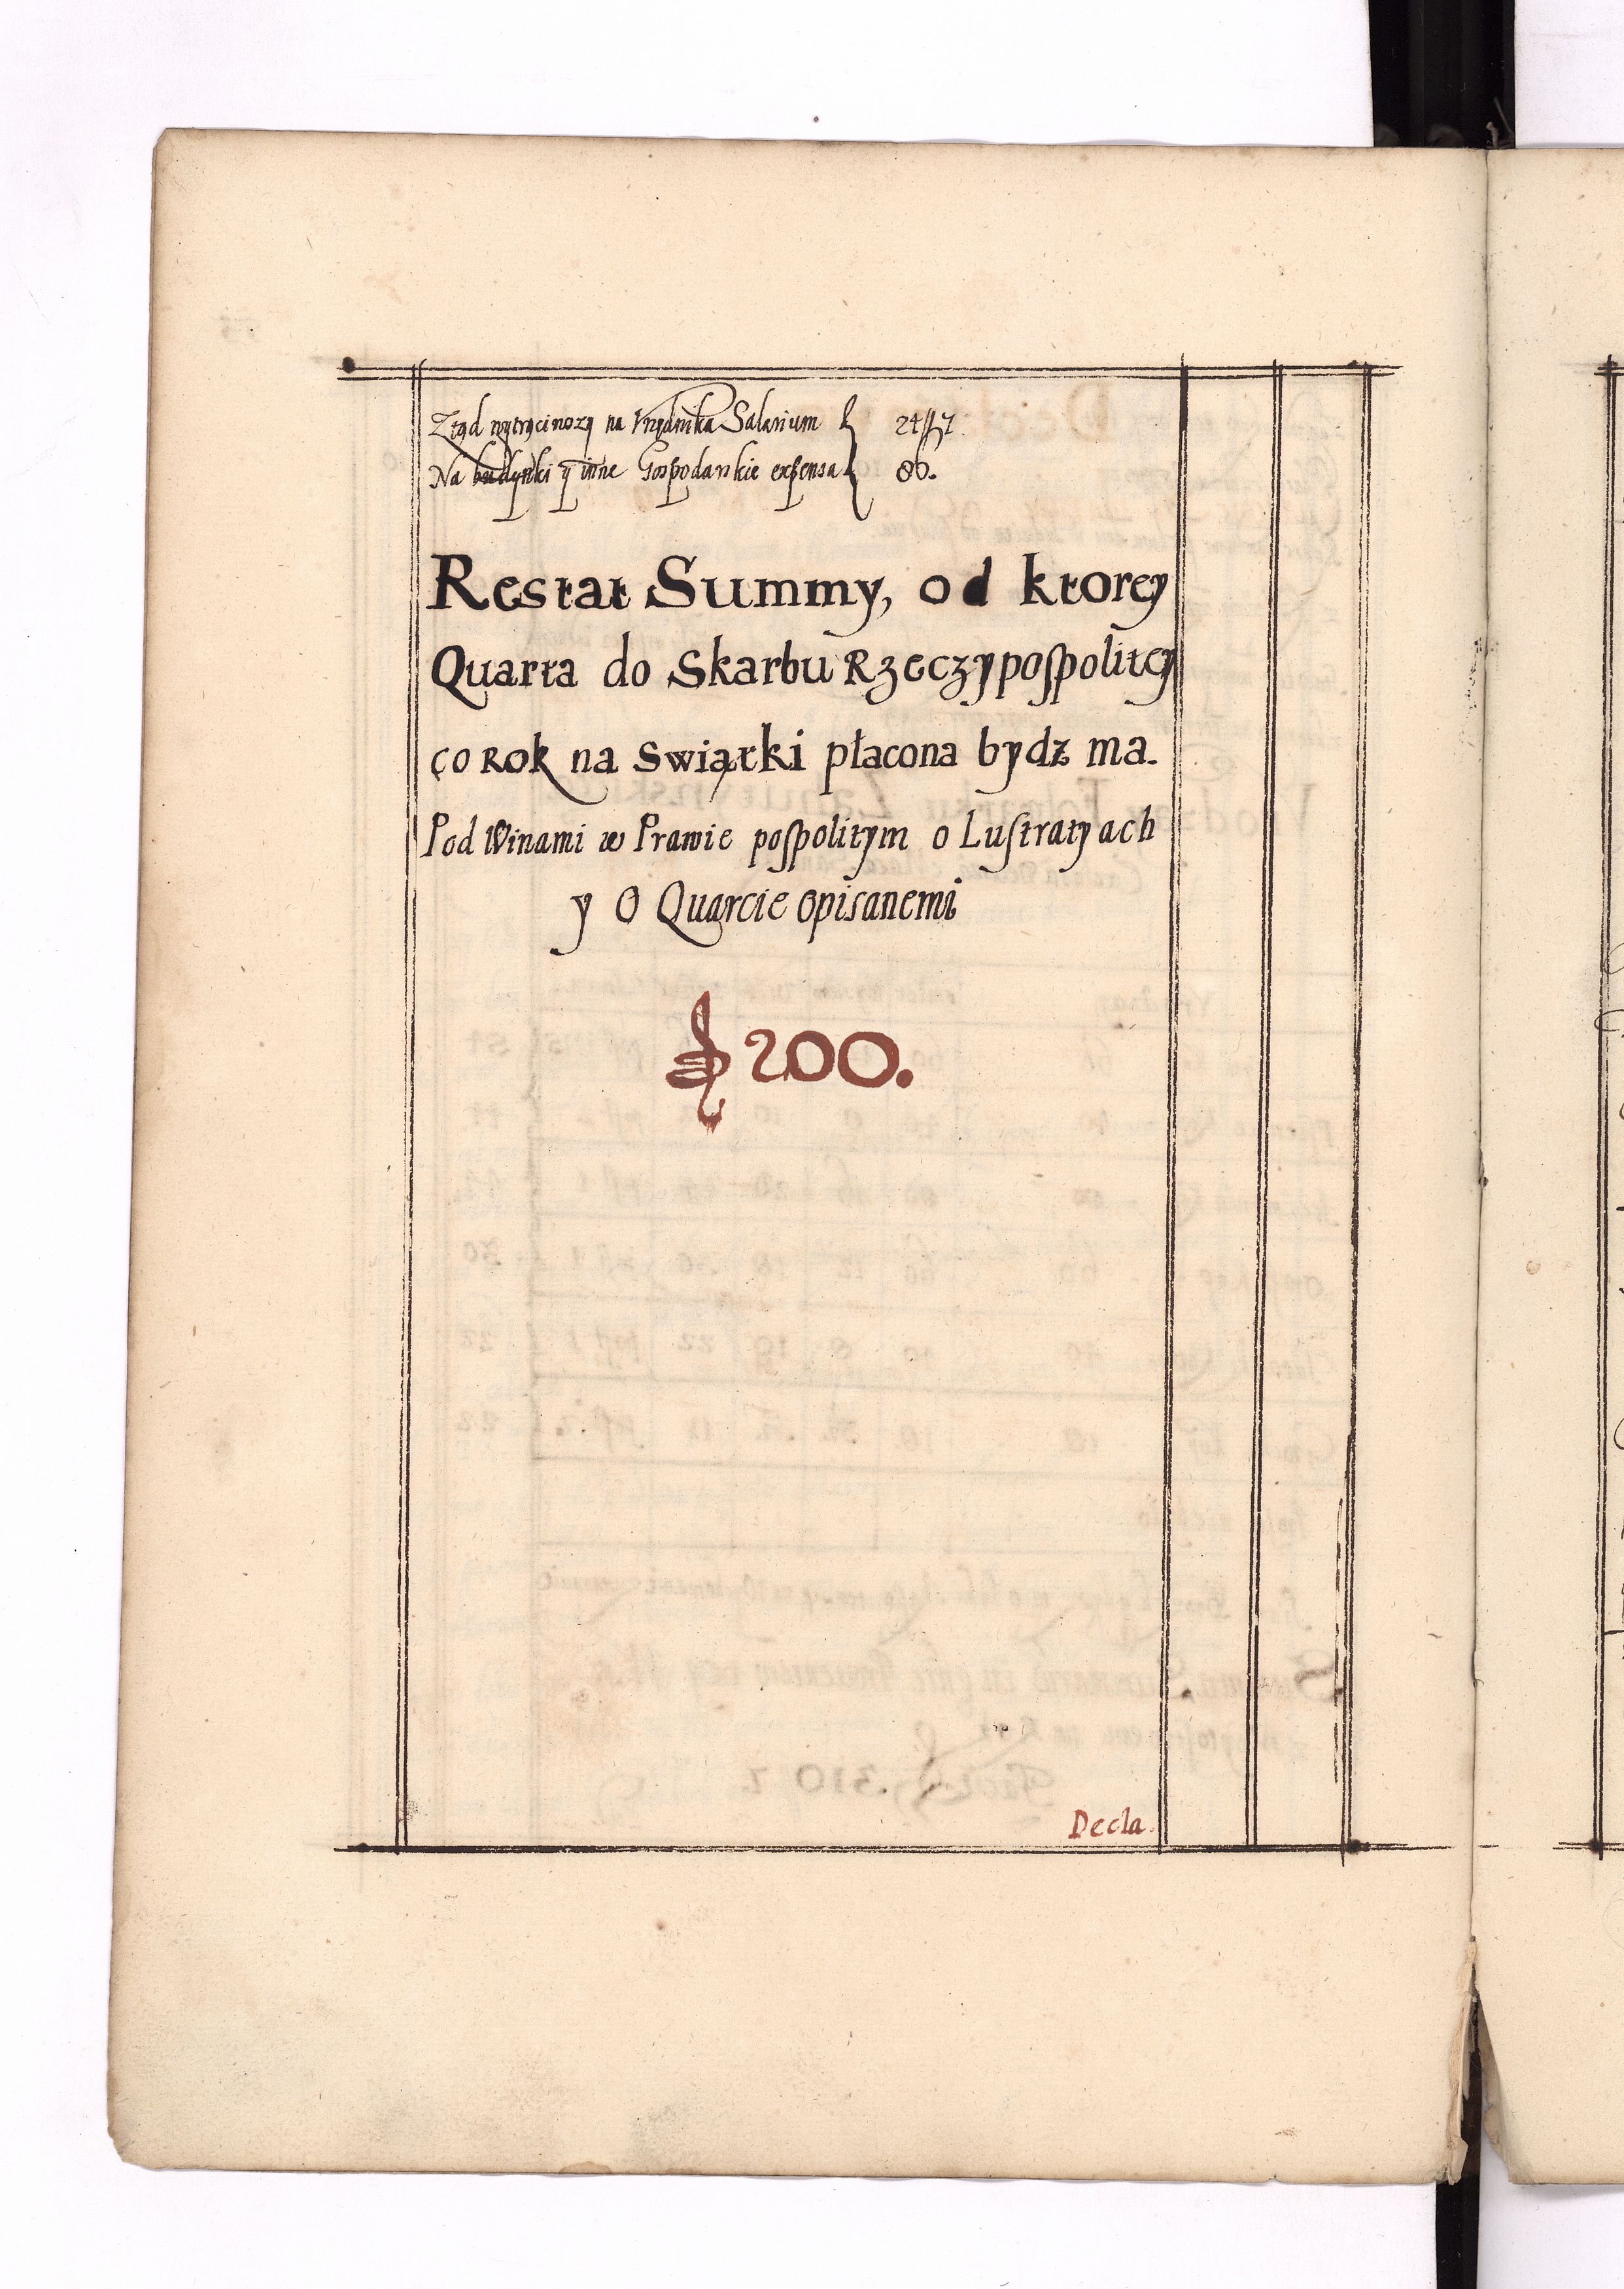 Ztąd wytrąciwszy na Vrzędnika Salarium 24
Na budynki y inne Gospodarskie expensa 86.
Restat Summy, od ktorey
Quarta do Skarbu Rzeczypospolitey
co Rok na Swiątki płacona bydz ma.
Pod Winami w Prawie pospolitym o Lustratyach
y O Quarcie opisanemi
200.
Decla.